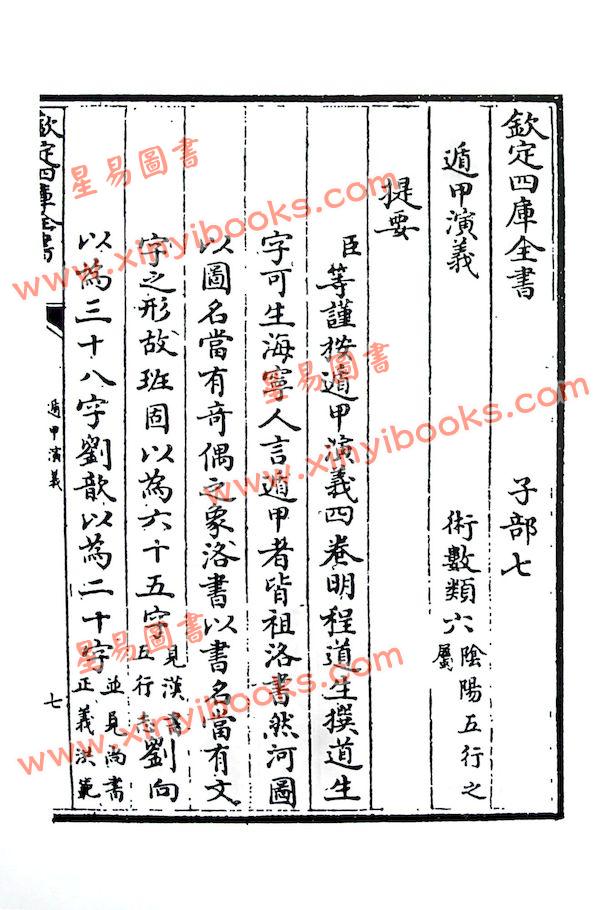 欽定四庫全書 子部七
遁甲演義 術數類六 陰陽五行之屬
提要
臣等謹按遁甲演義四卷明程道生撰道生
字可生海寧人言遁甲者皆祖洛書然河圖
以圖名當有奇偶之象洛書以書名當有文
字之形故班固以為六十五字 見漢書五行志 劉向
以為三十八字劉歆以為二十字 並見尚書正義洪範
欽定四庫全書
遁甲演義
七
星易圖書
www.xinyibooks.com
星易圖書
www.xinyibooks.com
星易圖書
www.xinyibooks.com